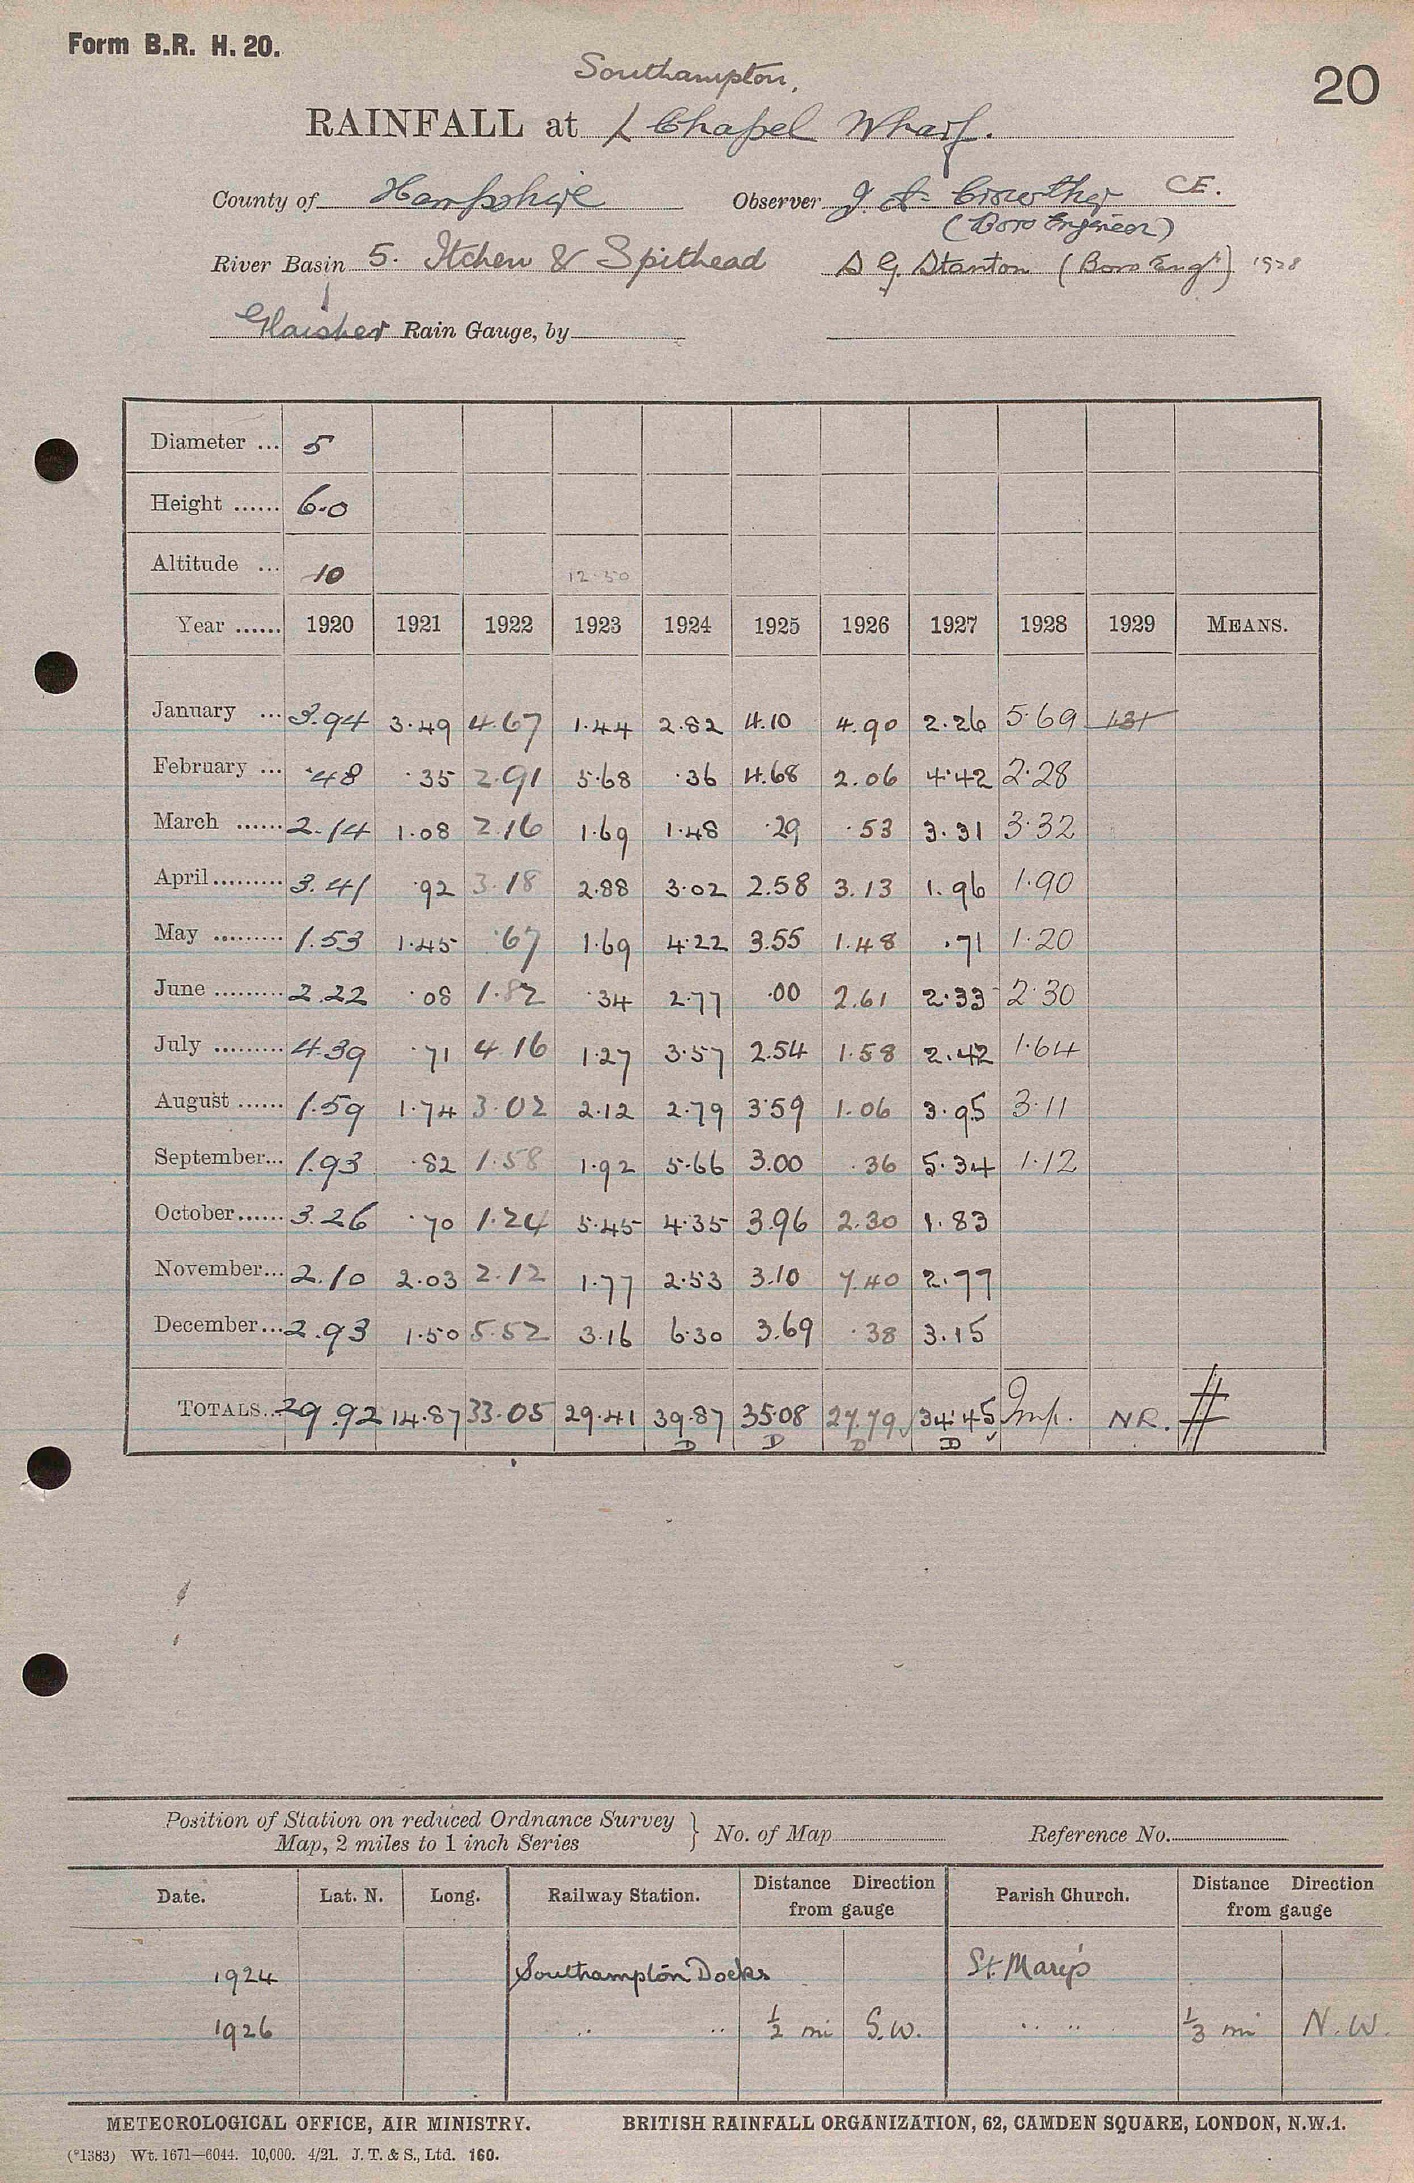 Form B.R. H. 20.
20
Southampton,
RAINFALL at Chapel Wharf.
County of Hampshire Observer J. A. Crowther C.E.
(Boro Engineer)
River Basin 5. Itchen & Spithead S G. Stanton (Boro Engr) 1928
Glaisher Rain Gauge, by
Diameter ... 5
Height ...... 6.0
Altitude ... 10 12.50
Year ...... 1920 1921 1922 1923 1924 1925 1926 1927 1928 1929 MEANS.
January ... 3.94 3.49 4.67 1.44 2.82 4.10 4.90 2.26 5.69 1.31
February ... .48 .35 2.91 5.68 .36 4.68 2.06 4.42 2.28
March ...... 2.14 1.08 2.16 1.69 1.48 .29 .53 3.31 3.32
April ......... 3.41 .92 3.18 2.88 3.02 2.58 3.13 1.96 1.90
May ......... 1.53 1.45 .67 1.69 4.22 3.55 1.48 .71 1.20
June ......... 2.22 .08 1.82 .34 2.77 .00 2.61 2.33 2.30
July ......... 4.39 .71 4.16 1.27 3.57 2.54 1.58 2.42 1.64
August ...... 1.59 1.74 3.02 2.12 2.79 3.59 1.06 3.95 3.11
September... 1.93 .82 1.58 1.92 5.66 3.00 .36 5.34 1.12
October...... 3.26 .70 1.24 5.45 4.35 3.96 2.30 1.83
November... 2.10 2.03 2.12 1.77 2.53 3.10 7.40 2.77
December... 2.93 1.50 5.52 3.16 6.30 3.69 .38 3.15
TOTALS... 29.92 14.87 33.05 29.41 39.87 35.08 27.79 34.45 Imp. NR. #
D D D D
Position of Station on reduced Ordnance Survey
Map, 2 miles to 1 inch Series } No. of Map Reference No.
Date. Lat. N. Long. Railway Station. Distance Direction from gauge Parish Church. Distance Direction from gauge
1924 Southampton Docks St. Mary's
1926 " " 1/2 mi S.W. " " 1/3 mi N.W.
METEOROLOGICAL OFFICE, AIR MINISTRY. BRITISH RAINFALL ORGANIZATION, 62, CAMDEN SQUARE, LONDON, N.W.1.
(*1383) Wt. 1671—6044. 10,000. 4/21. J. T. & S., Ltd. 160.